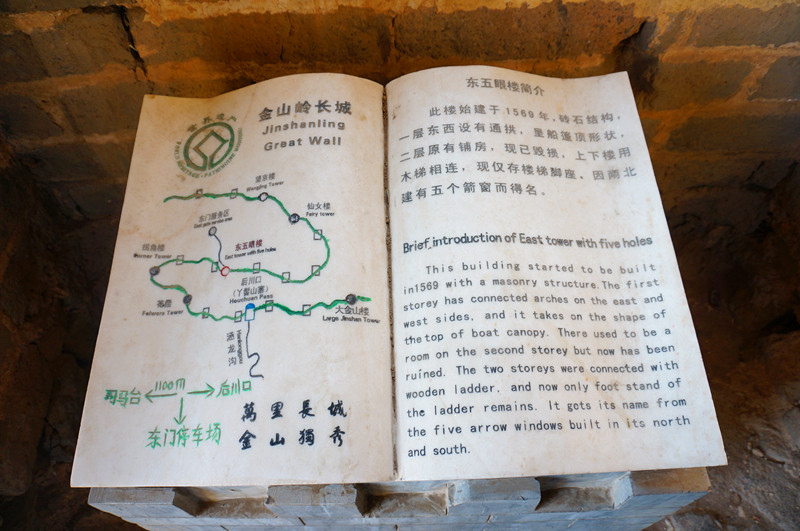 金山岭长城
Jinshanling
Great Wall
世界遗产
望京楼
Wangjing Tower
仙女楼
Fairy tower
东门服务区
East gate service area
东五眼楼
East tower with five holes
拐角楼
Corner Tower
后川口
(丫髻山寨)
Houchuan Pass
大金山楼
Large Jinshan Tower
汤龙沟
司马台
1100m
后川口
东门停车场
萬里長城
金山獨秀
东五眼楼简介
此楼始建于1569年,砖石结构,
一层东西设有通拱,呈船篷顶形状,
二层原有铺房,现已毁损,上下楼用
木梯相连,现仅存楼梯脚座,因南北
建有五个箭窗而得名。
Brief introduction of East tower with five holes
This building started to be built
in1569 with a masonry structure.The first
storey has connected arches on the east and
west sides, and it takes on the shape of
the top of boat canopy. There used to be a
room on the second storey but now has been
ruined. The two storeys were connected with
wooden ladder, and now only foot stand of
the ladder remains. It gets its name from
the five arrow windows built in its north
and south.